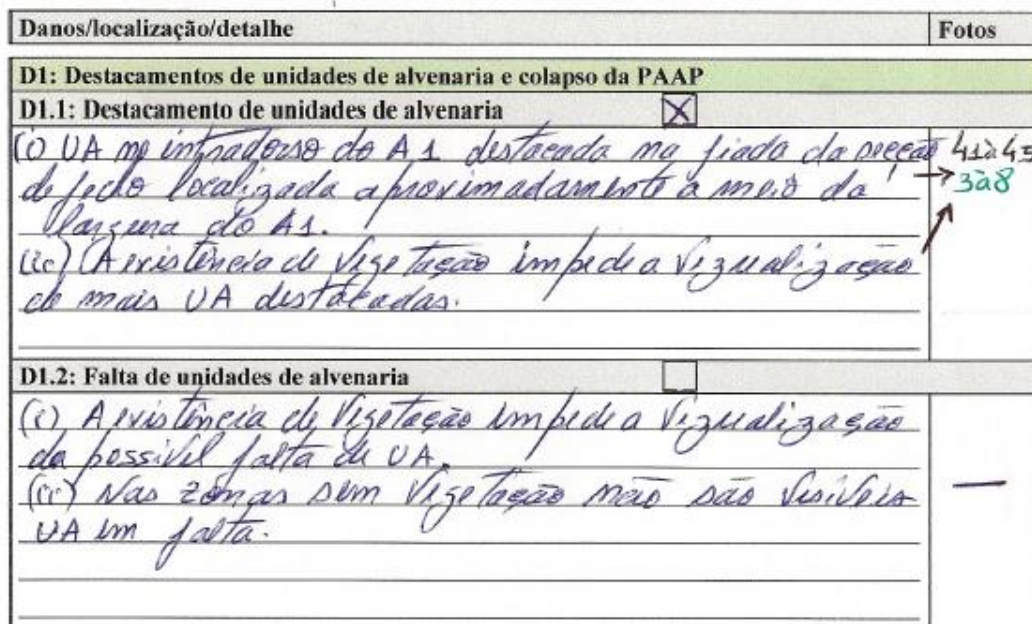 Danos/localização/detalhe Fotos
D1: Destacamentos de unidades de alvenaria e colapso da PAAP
D1.1: Destacamento de unidades de alvenaria X
(i) UA no intradorso do A1 destacada na fiada da secção 41 à 45
de fecho localizada aproximadamente a meio da → 3 à 8
largura do A1.
(ii) A existência de vegetação impede a vizualização
de mais UA destacadas.
D1.2: Falta de unidades de alvenaria
(i) A existência de vegetação impede a vizualização
da possível falta de UA.
(ii) Nas zonas sem vegetação não são visíveis —
UA em falta.